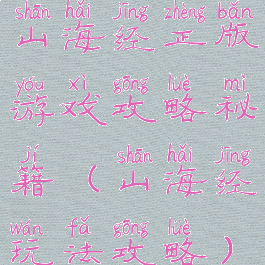 shān hǎi jīng zhèng bǎn
山海经正版
yóu xì gōng lüè mì
游戏攻略秘
jí shān hǎi jīng
籍(山海经
wán fǎ gōng lüè
玩法攻略)